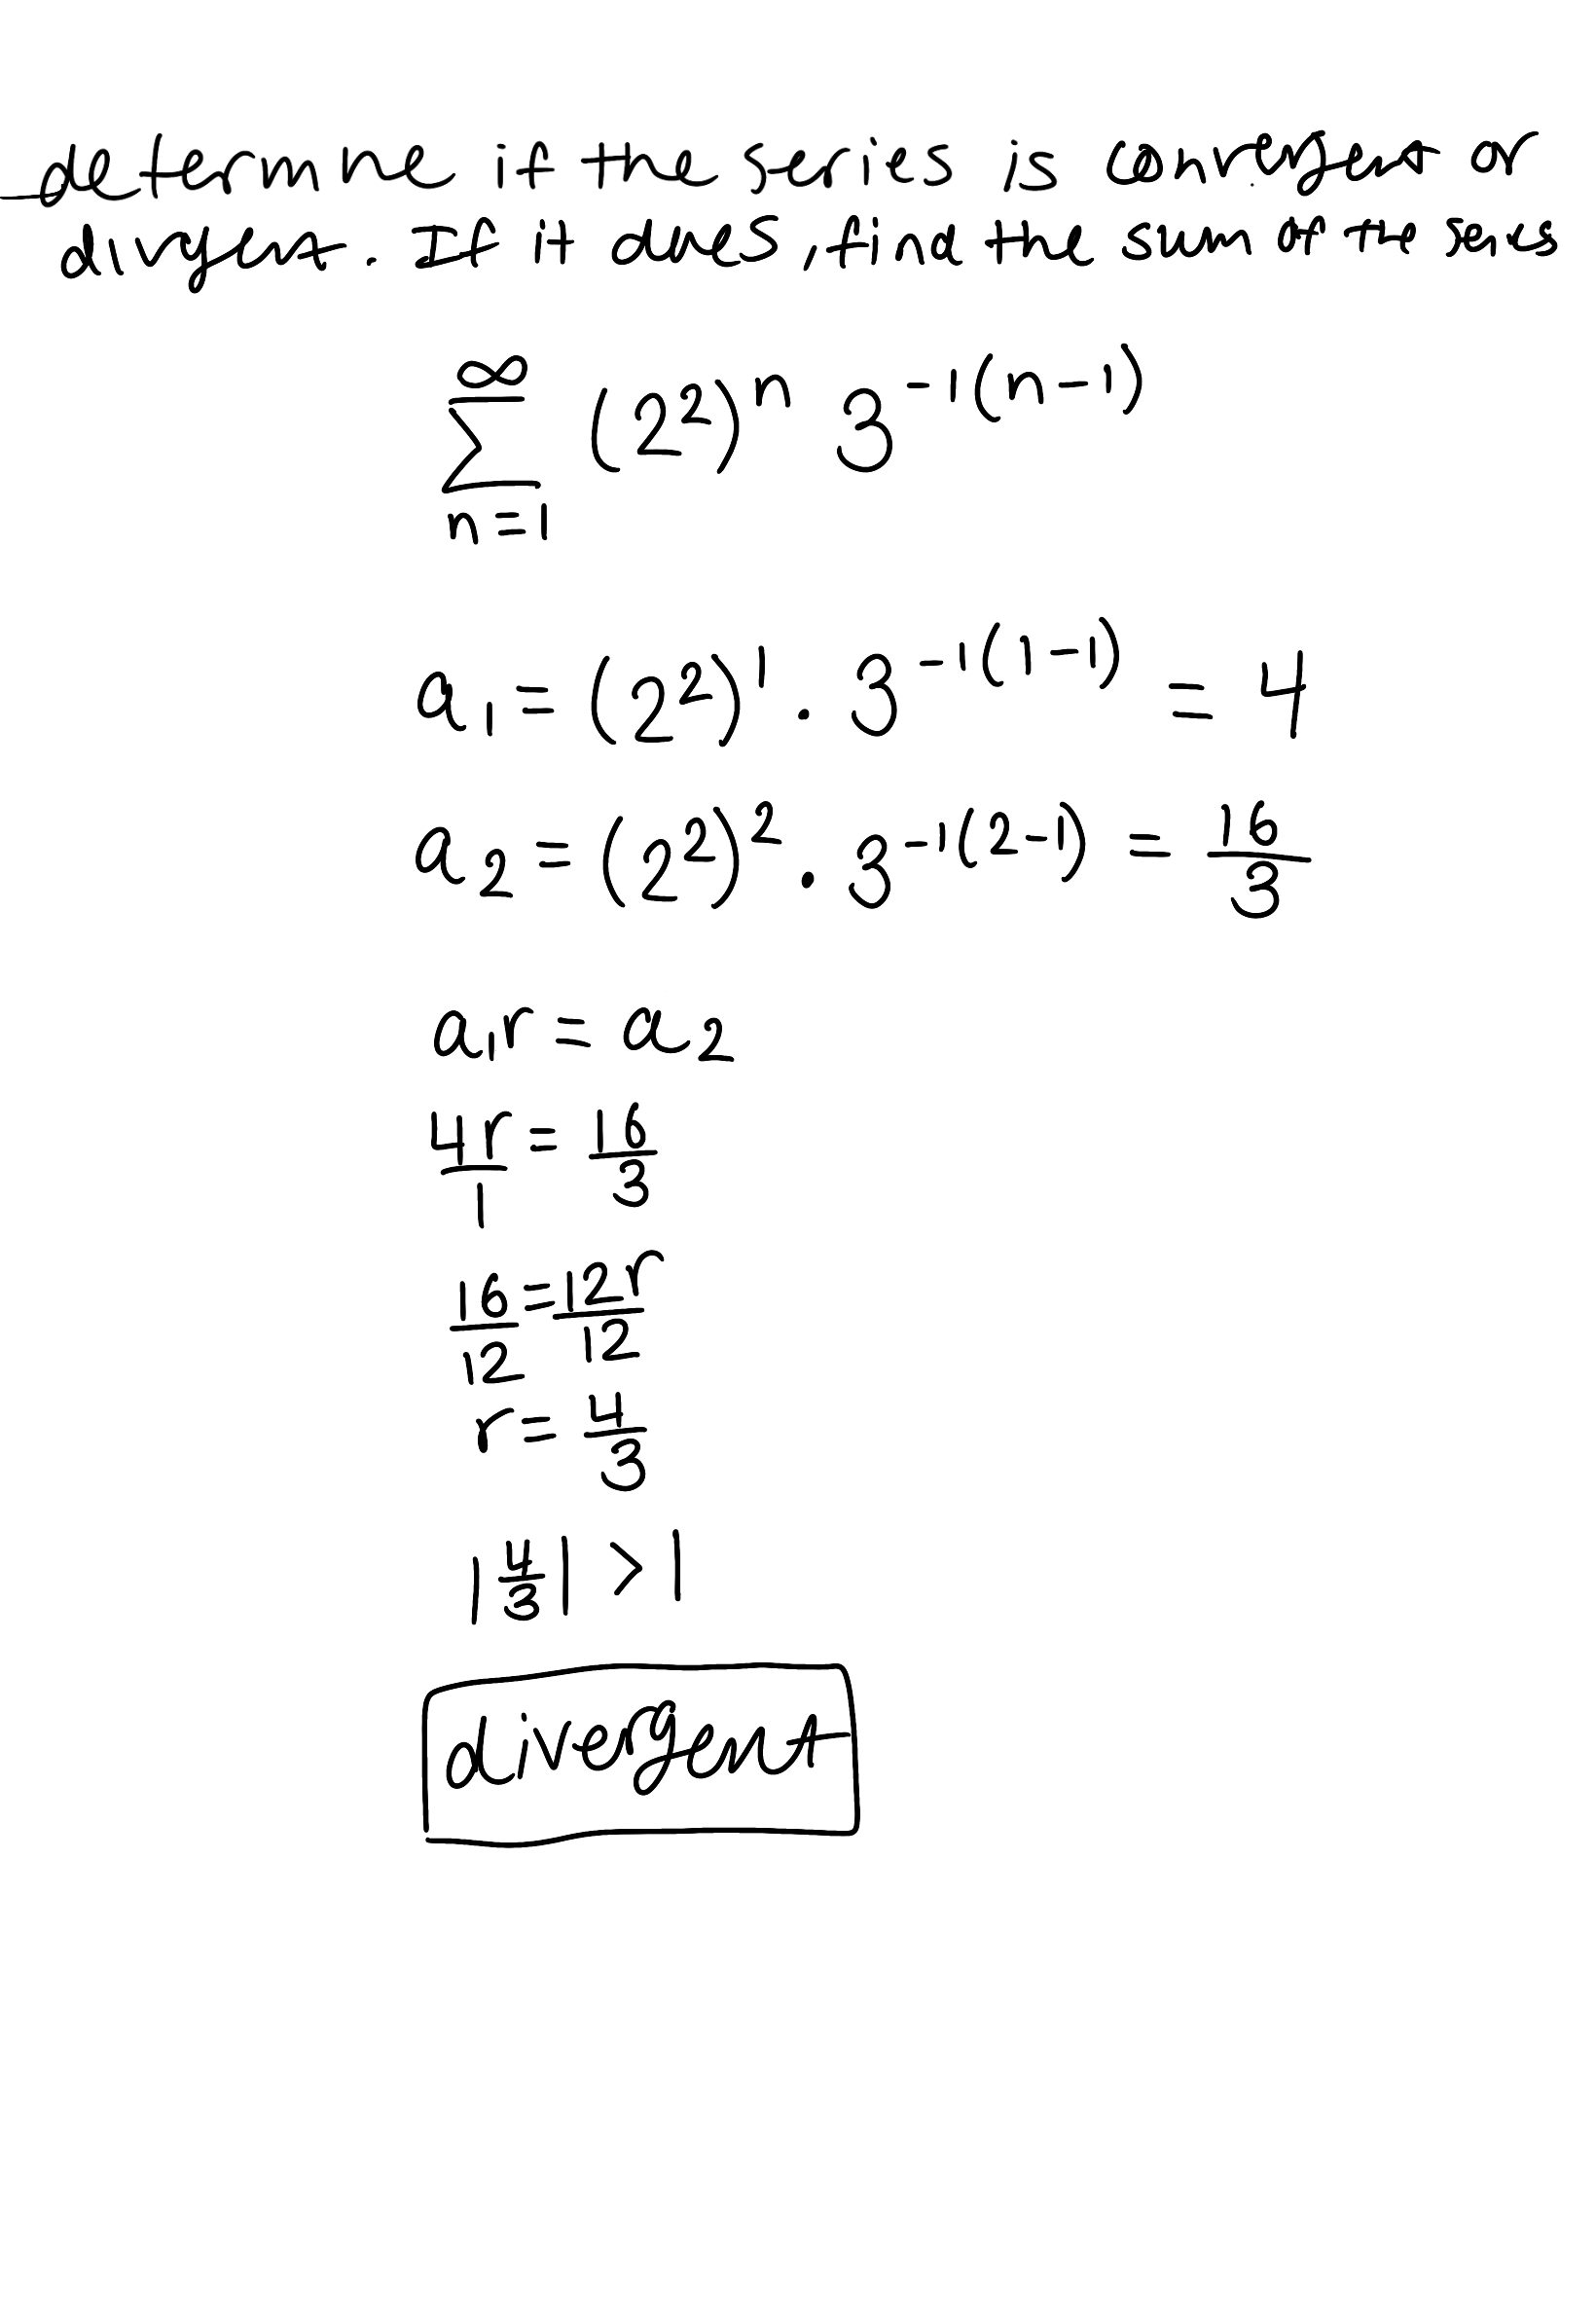 determine if the series is convergent or
divergent. If it does, find the sum of the series
∞
∑ (2²)ⁿ 3⁻¹⁽ⁿ⁻¹⁾
n=1
a₁ = (2²)¹ · 3⁻¹⁽¹⁻¹⁾ = 4
a₂ = (2²)² · 3⁻¹⁽²⁻¹⁾ = 16/3
a₁r = a₂
4r/1 = 16/3
16/12 = 12r/12
r = 4/3
|4/3| > 1
divergent